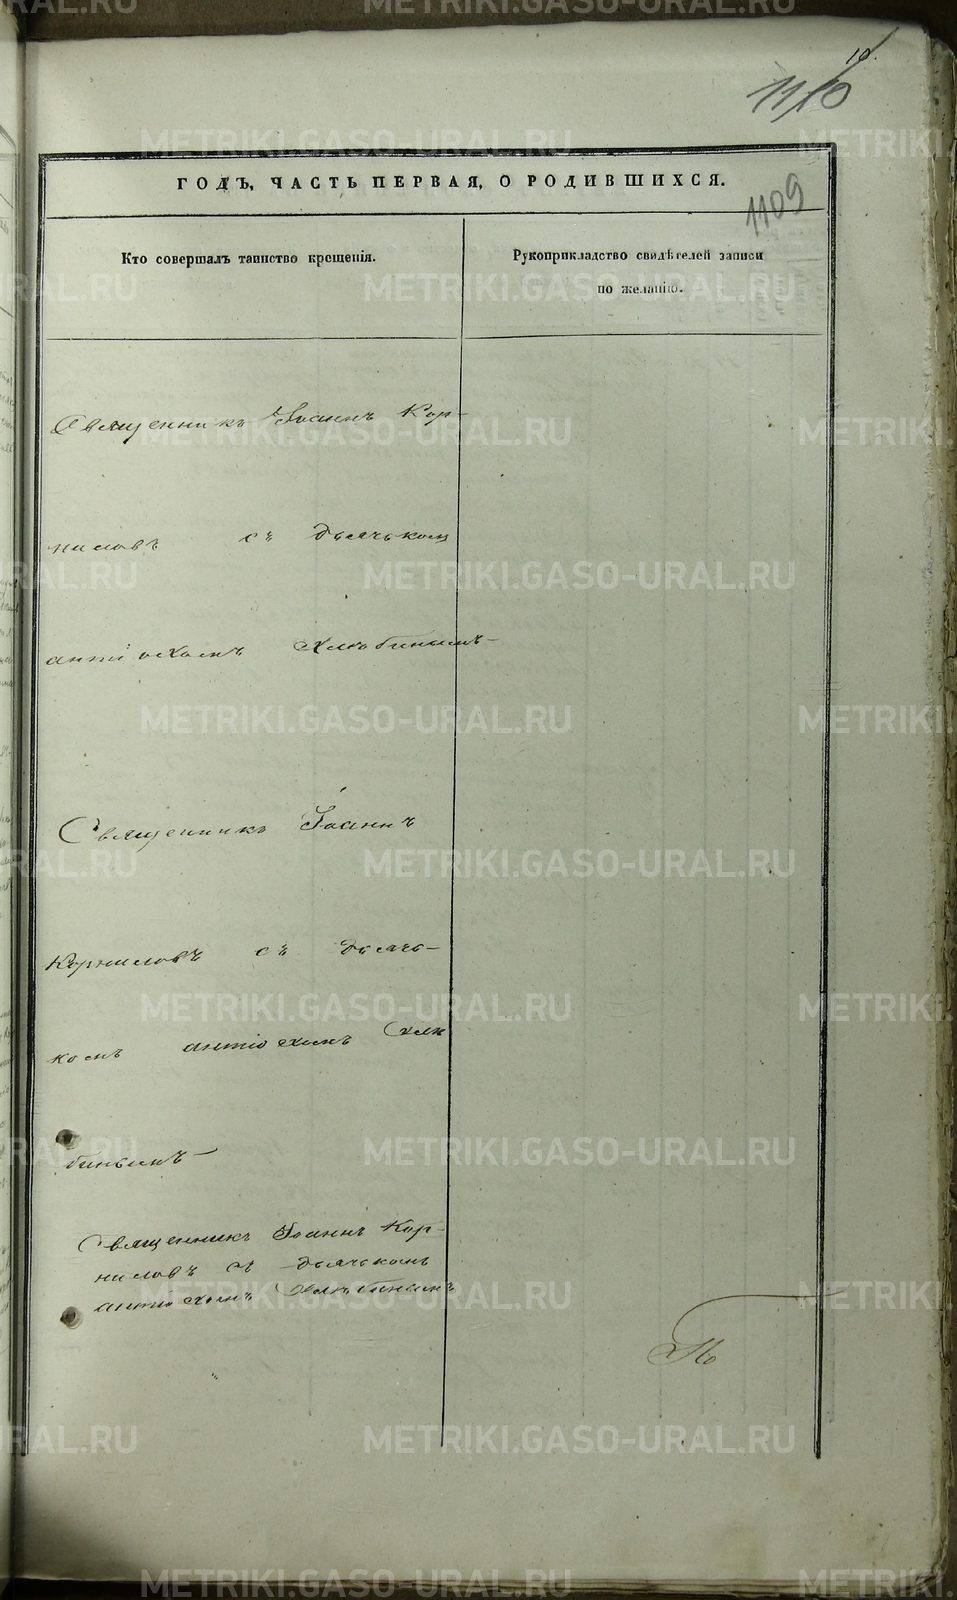 10.
11/10
ГОДЪ, ЧАСТЬ ПЕРВАЯ, О РОДИВШИХСЯ.
1109
Кто совершалъ таинство крещенія.
Рукоприкладство свидѣтелей записи
по желанію.
Священникъ Іоаннъ Кор-
ниловъ съ дьячькомъ
антіохомъ Хлѣбинымъ
Священникъ Іоаннъ
Корниловъ съ дьячь-
комъ антіохомъ Хлѣ
бинымъ
Священникъ Іоаннъ Кор-
ниловъ съ дьячькомъ
антіохомъ Хлѣбинымъ
По
METRIKI.GASO-URAL.RU